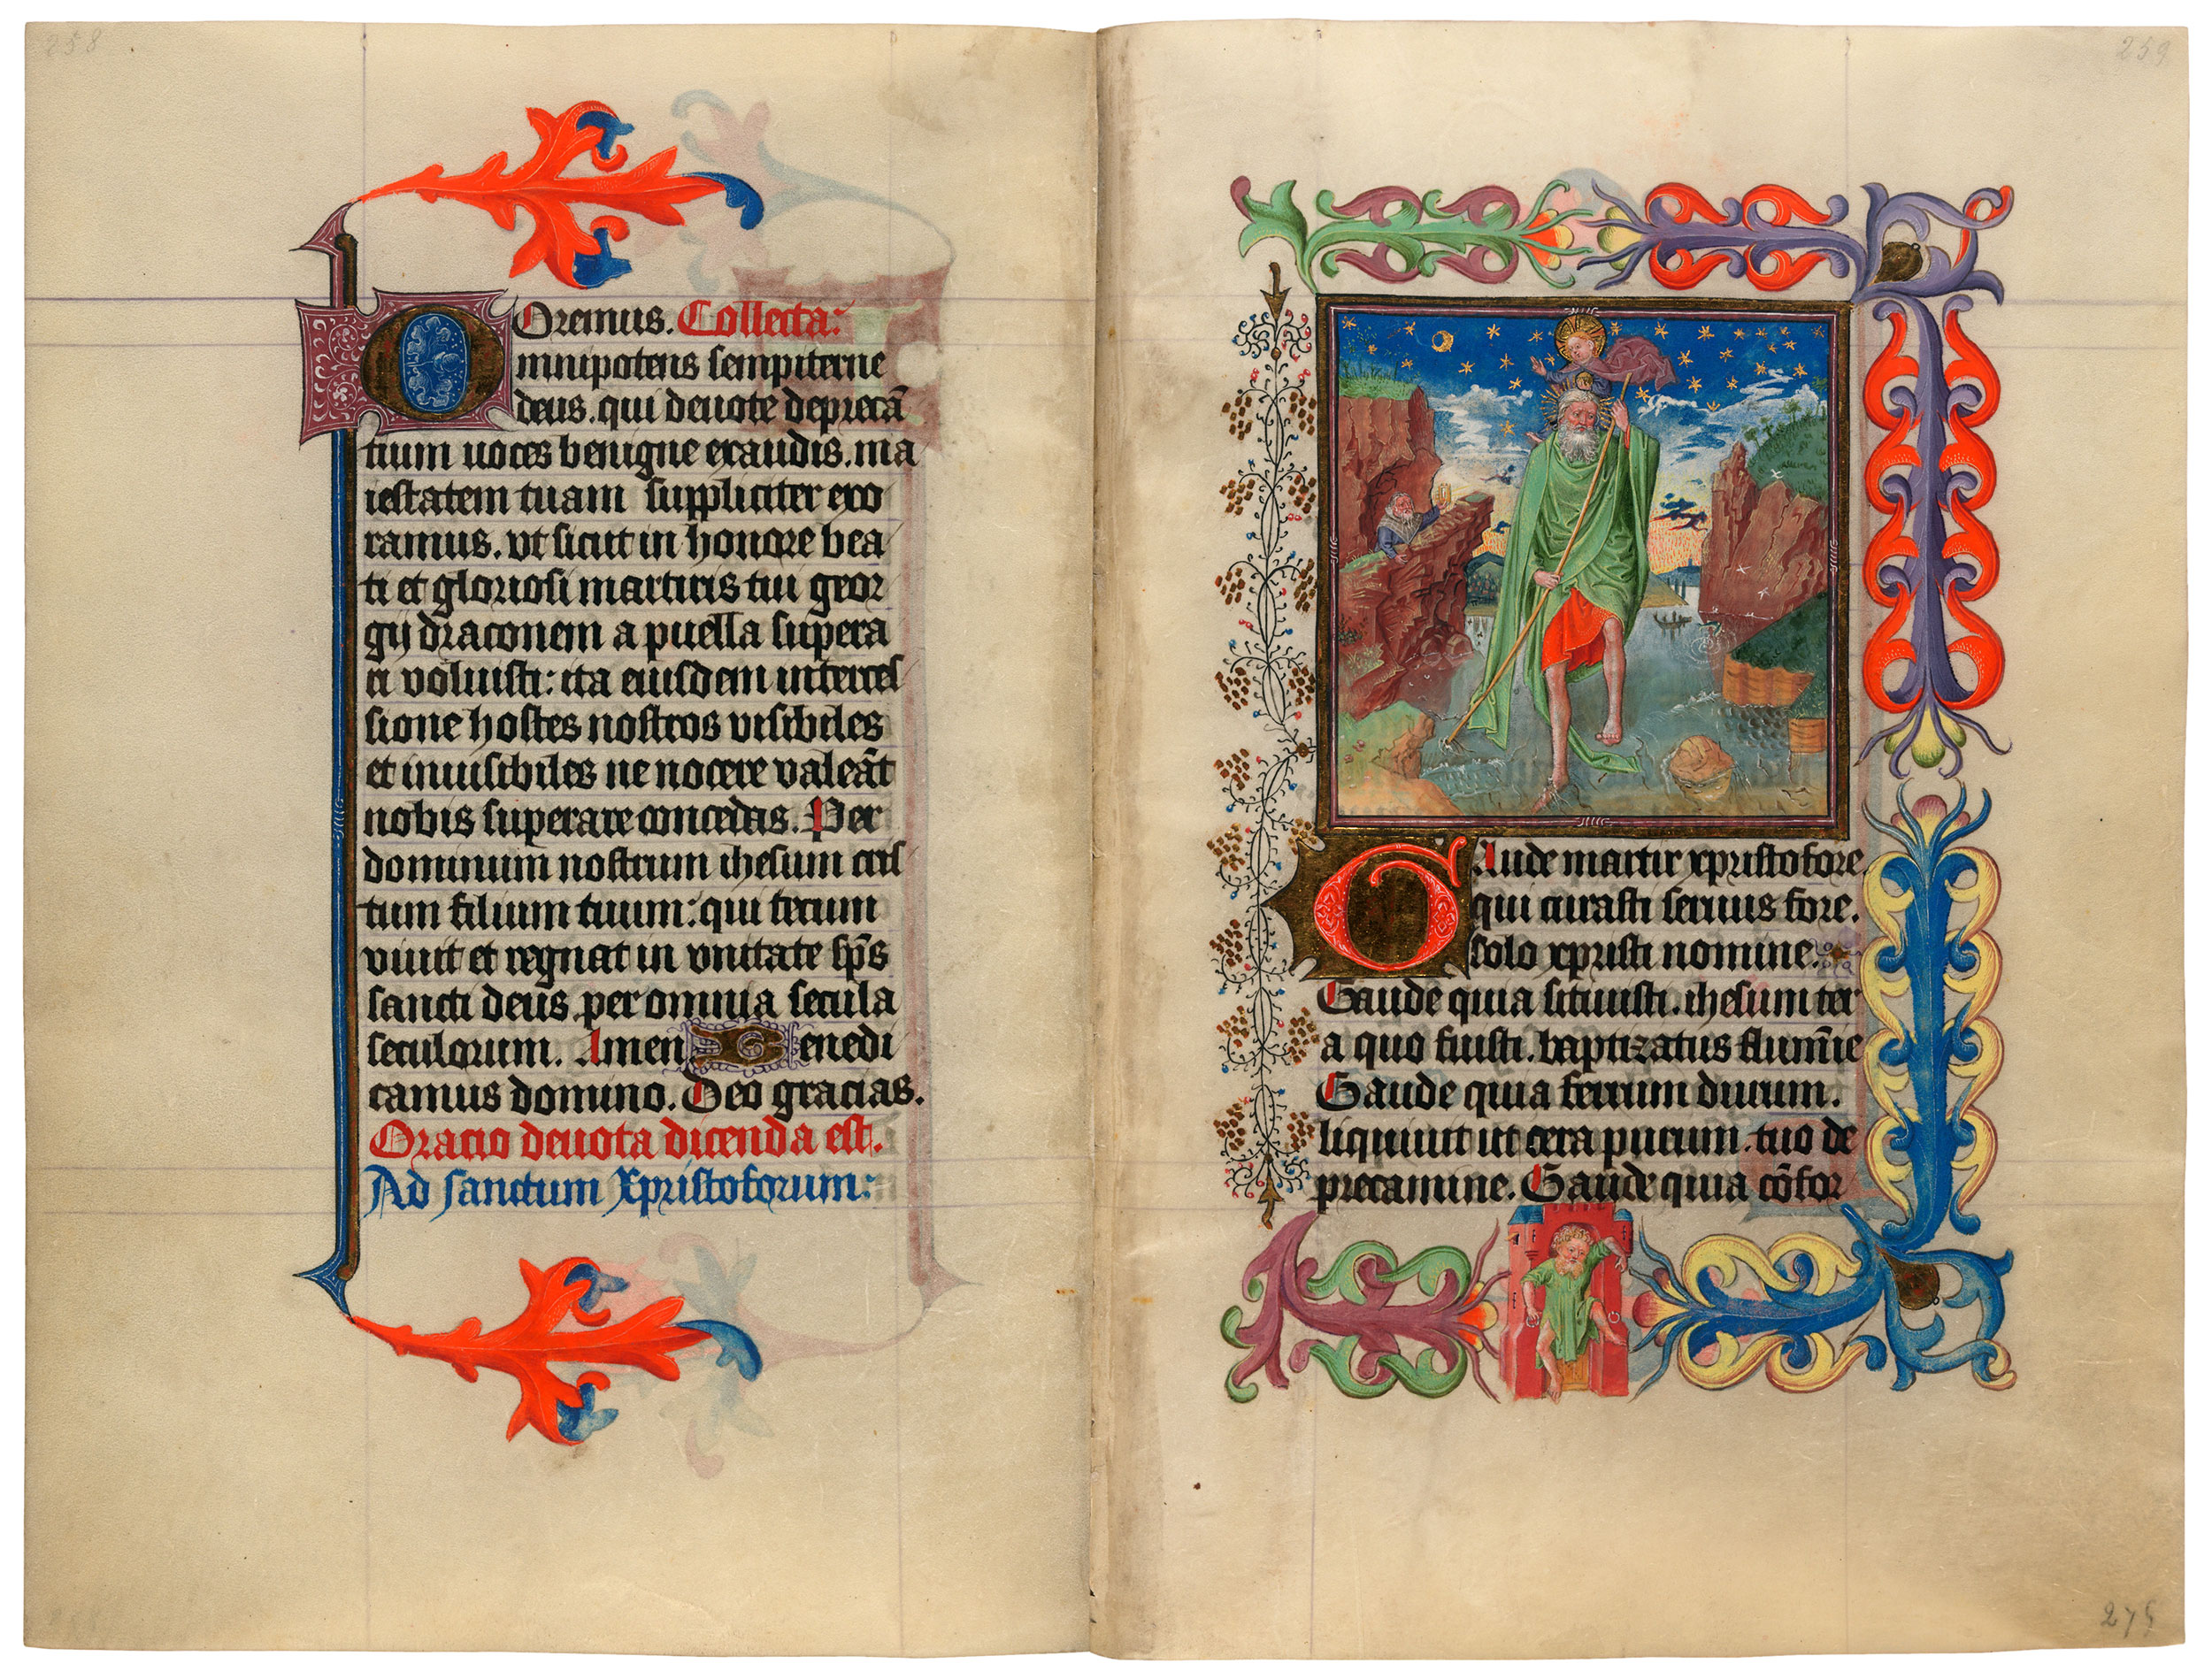 258
Oremus. Collecta:
Omnipotens sempiterne
deus. qui deuote depreca̅
tium uoces benigne exaudis. ma
iestatem tuam suppliciter exo
ramus. vt sicut in honore bea
ti et gloriosi martiris tui geor
gij draconem a puella supera
ri voluisti: ita eiusdem interces
sione hostes nostros visibiles
et inuisibiles ne nocere valea̅t
nobis superare concedas. Per
dominum nostrum ihesum cris
tum filium tuum: qui tecum
viuit et regnat in vnitate sp̅s
sancti deus. per omnia secula
seculorum. Amen Benedi
camus domino. Deo gracias.
Oracio deuota dicenda est.
Ad sanctum Xpristoforum:
259
GAude martir xpristofore
qui curasti seruus fore.
solo xpristi nomine.
Gaude quia sitiuisti. ihesum ter
a quo fuisti. baptizatus flumi̅e
Gaude quia ferrum durum.
liquiuit ut cera purum. tuo de
precamine. Gaude quia co̅for
275